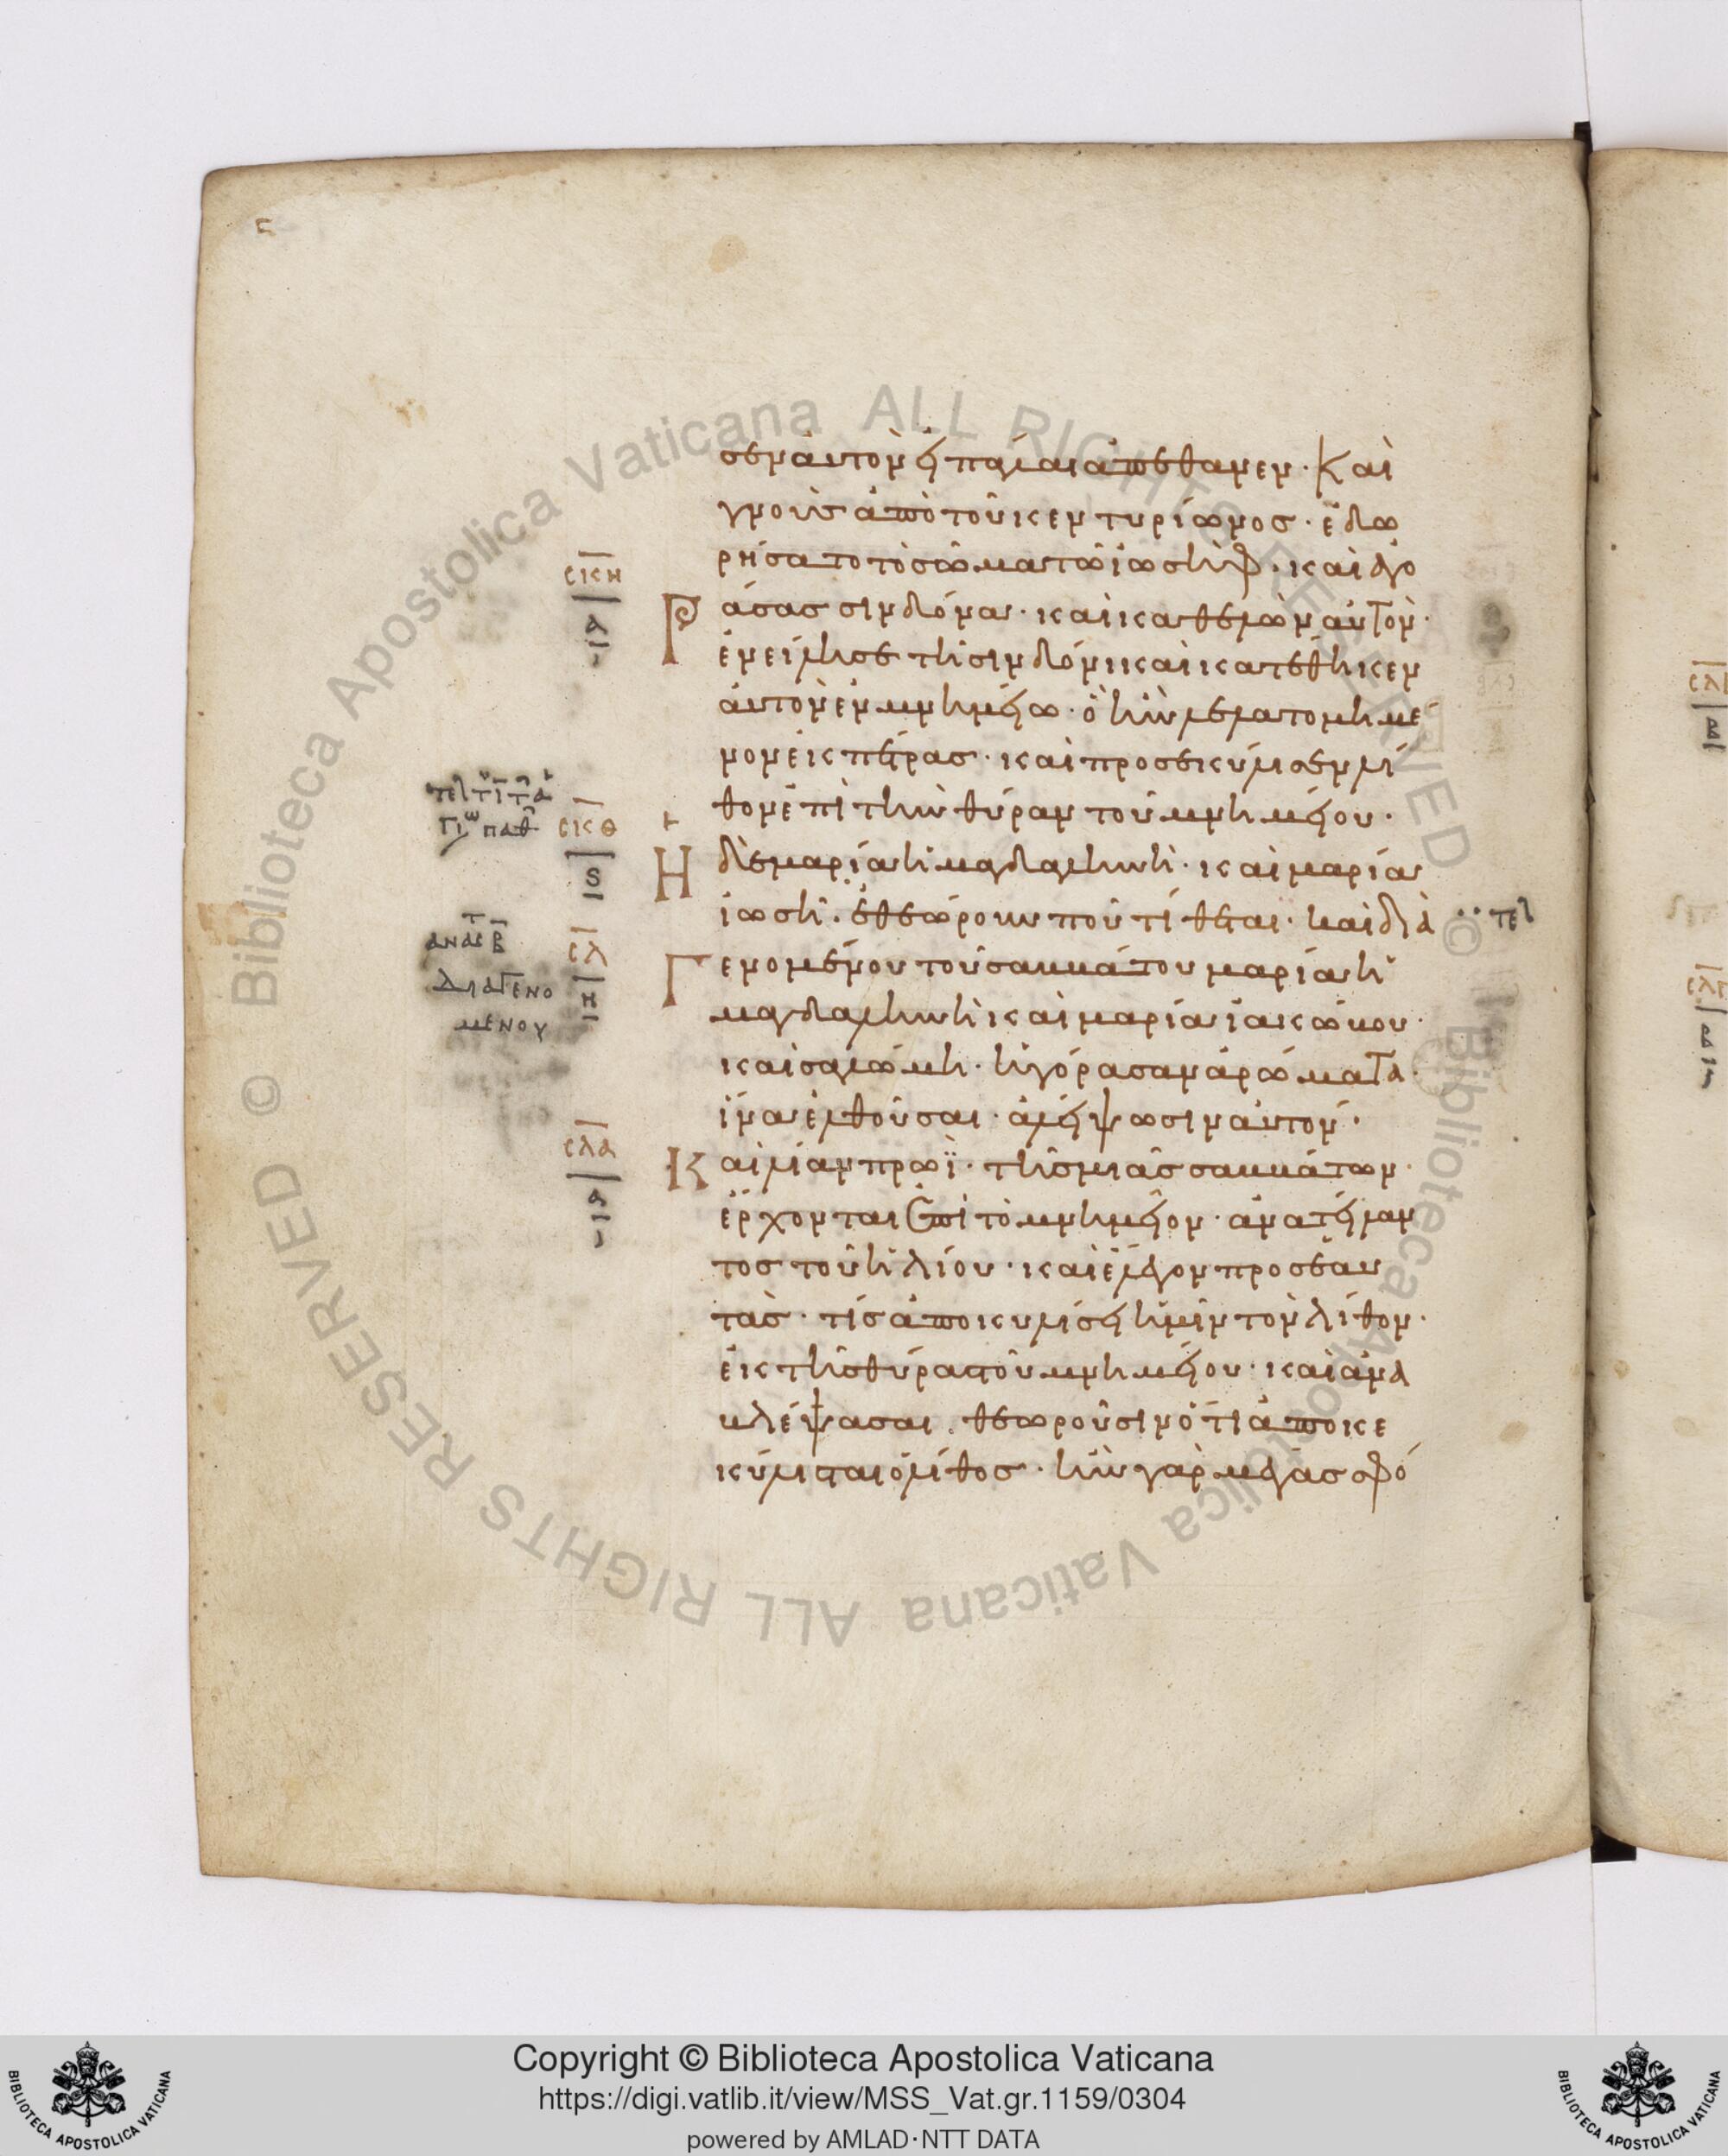 σεν αὐτὸν εἰ πάλαι ἀπέθανεν· Καὶ
γνοὺς ἀπὸ τοῦ κεντυρίωνος· ἐδω
ρήσατο τὸ σῶμα τῶ ἰωσὴφ· καὶ ἀγο
Ράσας σινδόνα· καὶ καθελὼν αὐτὸν·
ἐνείλησε τῆ σινδόνι καὶ κατέθηκεν
αὐτὸν ἐν μνημείω· ὃ ἦν λελατομημέ
νον ἐκ πέτρας· καὶ προσεκύλισεν λί
θον ἐπὶ τὴν θύραν τοῦ μνημείου·
Η δὲ μαρία ἡ μαγδαληνὴ· καὶ μαρία
ἰωσῆ· ἐθεώρουν ποῦ τίθεται· Καὶ δια
Γενομένου τοῦ σαββάτου μαρία ἡ
μαγδαληνὴ καὶ μαρία ἰακώβου·
καὶ σαλώμη· ἠγόρασαν ἀρώματα·
ἵνα ἐλθοῦσαι· ἀλείψωσιν αὐτόν·
Καὶ λίαν πρωῒ· τῆς μιᾶς σαββάτων·
ἔρχονται ἐπὶ τὸ μνημεῖον· ἀνατείλαν
τος τοῦ ἡλίου· καὶ ἔλεγον πρὸς ἑαυ
τὰς· τίς ἀποκυλίσει ἡμῖν τὸν λίθον·
ἐκ τῆς θύρας τοῦ μνημείου· καὶ ἀνα
βλέψασαι· θεωροῦσιν ὅτι ἀποκε
κύλισται ὁ λίθος· ἦν γὰρ μέγας σφό
ϲκη
α
ϲκθ
ϛ
ϲλ
η
διαγενο
μένου
ϲλα
α
τελ
Copyright © Biblioteca Apostolica Vaticana
https://digi.vatlib.it/view/MSS_Vat.gr.1159/0304
powered by AMLAD·NTT DATA
© Biblioteca Apostolica Vaticana ALL RIGHTS RESERVED
© Biblioteca Apostolica Vaticana ALL RIGHTS RESERVED
BIBLIOTECA APOSTOLICA VATICANA
BIBLIOTECA APOSTOLICA VATICANA